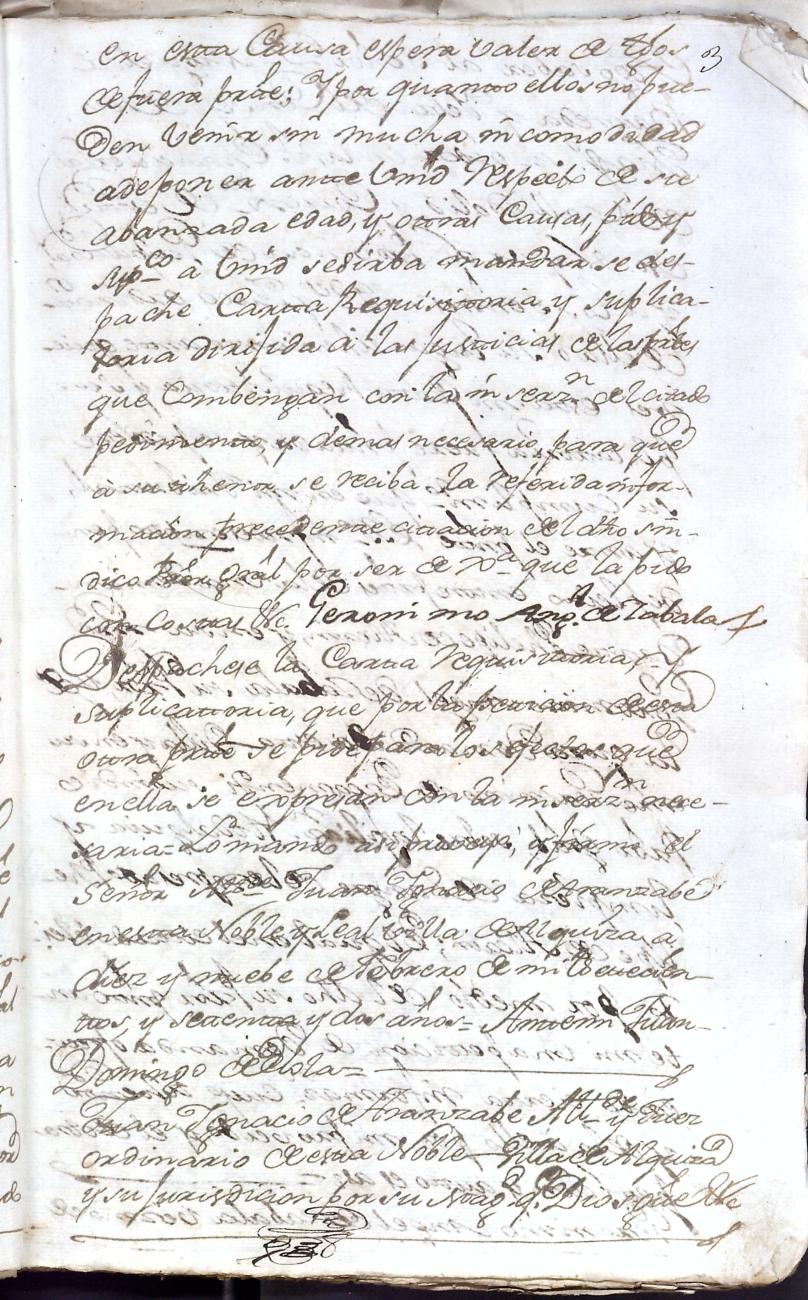 en esta Causa espera valer de tgos
3
de fuera prte; Y por quanto ellos no pue-
den Venir sin mucha incomodidad
a deponer ante Vmd Respecto de su
abanzada edad, y otras Causas, pido y
supco à Vmd se sirba mandar se des-
pache Carta Requisitoria, y suplica-
toria dirijida â las Justicias de las prtes
que Combengan con la inserzn del citado
pedimento, y demas necesario, para que
â su thenor se reciba la referida infor-
macion precedente citacion del dho sin-
dico Prôr Gral, por ser de Xa que la pido
con costas &c. Geronimo Angl de Zabala
Despachese la Carta requisitoria, Y
suplicatoria, que por la peticion de esta
otra prte se pide para los efectos que
en ella se expresan con la inserzn nece-
saria= Lo mandô asi proveyô, y firmô el
Señor Alcde Juan Ignacio de Aranzabe
en esta Noble y Leal Villa de Alquiza a
diez y nuebe de Febrero de mil setecien-
tos, y setenta y dos años= Antemi Juan
Domingo de Olola=
Juan Ignacio de Aranzabe Alcde y Juez
ordinario de esta Noble Villa de Alquiza
y su Jurisdicion por su Magd qe. Dios gûe &c